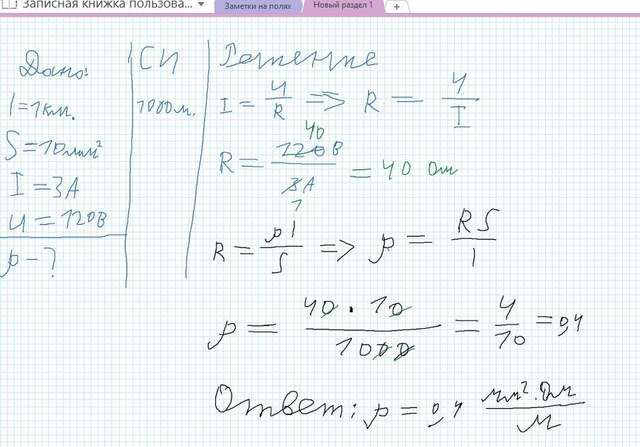 Записная книжка пользова...
Заметки на полях
Новый раздел 1
+
Дано:
l = 1 км.
S = 10 мм²
I = 3 А
U = 120 В
ρ - ?
СИ
1000 м.
Решение
I = U/R => R = U/I
R = 120 В/3 А = 40 Ом
40
1
R = ρl/S => ρ = RS/l
ρ = 40 · 10/1000 = 4/10 = 0,4
Ответ: ρ = 0,4 мм² · Ом/м